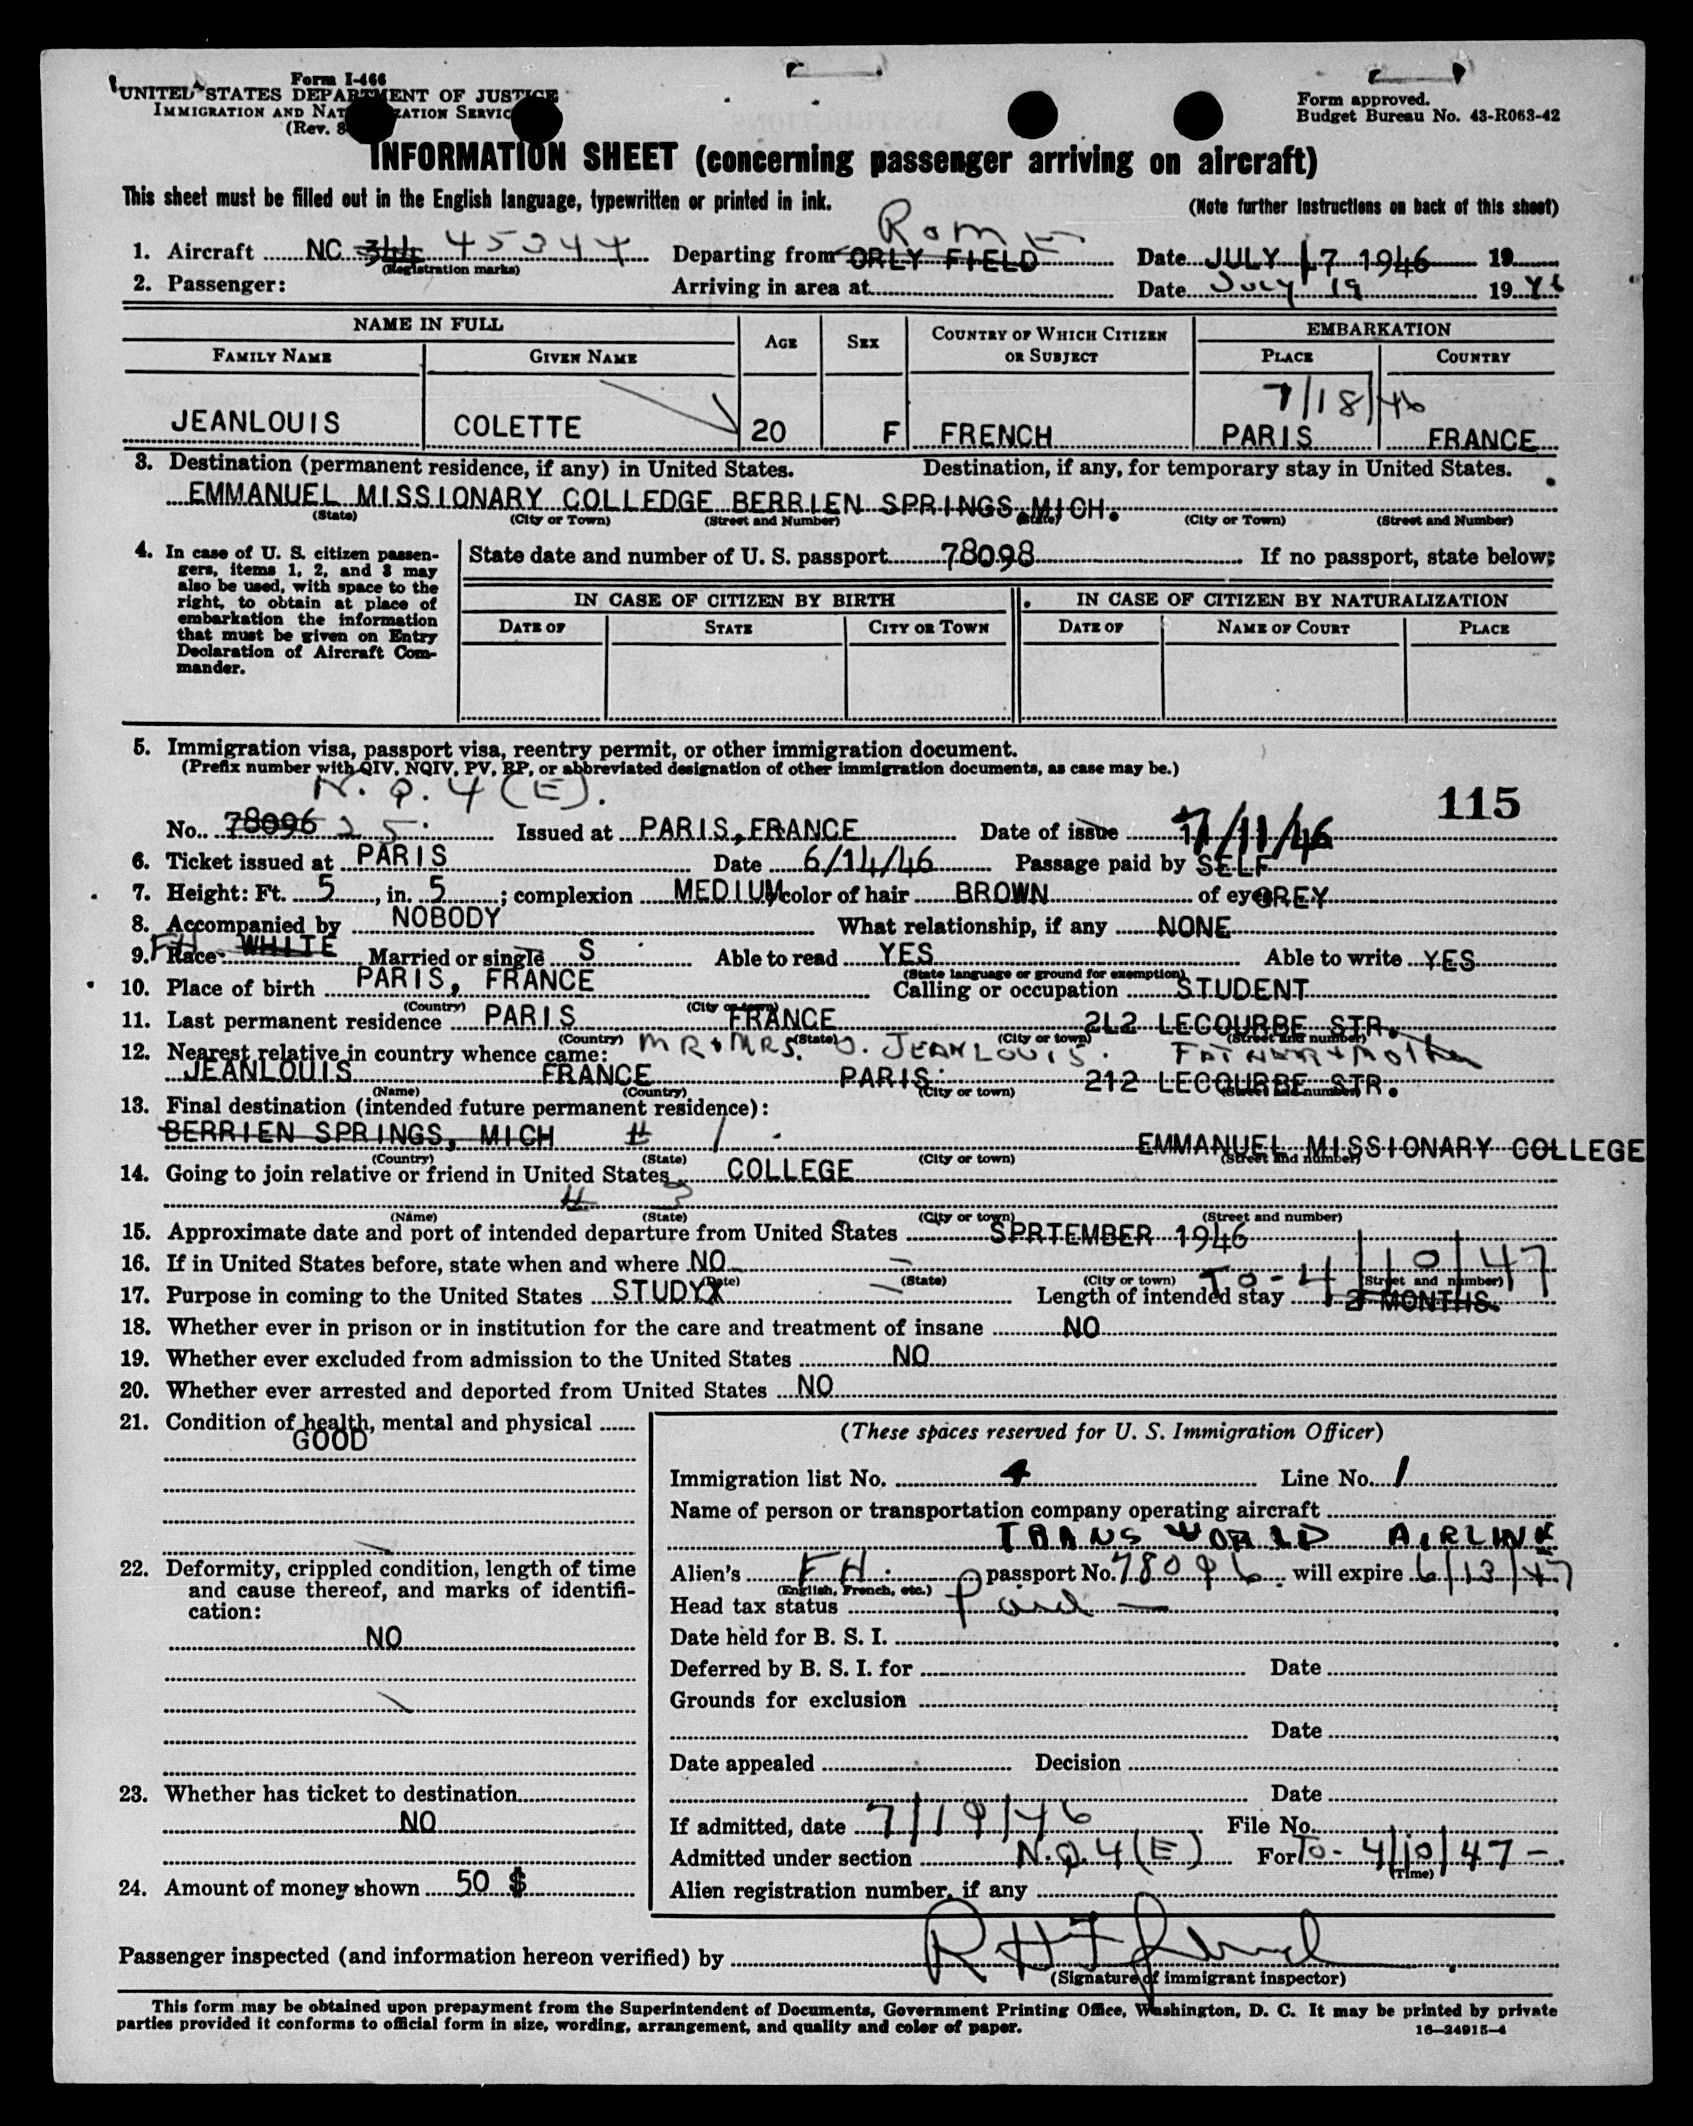 Form I-466
UNITED STATES DEPARTMENT OF JUSTICE
IMMIGRATION AND NAT ZATION SERVIC
(Rev. 8
Form approved.
Budget Bureau No. 43-R063-42
INFORMATION SHEET (concerning passenger arriving on aircraft)
This sheet must be filled out in the English language, typewritten or printed in ink.
(Note further instructions on back of this sheet)
Rome
1. Aircraft NC 344 45344 Departing from ORLY FIELD Date JULY 17 1946 19
(Registration marks)
2. Passenger: Arriving in area at Date July 19 1946
NAME IN FULL AGE SEX COUNTRY OF WHICH CITIZEN OR SUBJECT EMBARKATION
FAMILY NAME GIVEN NAME PLACE COUNTRY
7/18/46
JEANLOUIS COLETTE 20 F FRENCH PARIS FRANCE
3. Destination (permanent residence, if any) in United States. Destination, if any, for temporary stay in United States.
EMMANUEL MISSIONARY COLLEDGE BERRIEN SPRINGS MICH.
(State) (City or Town) (Street and Number) (State) (City or Town) (Street and Number)
4. In case of U. S. citizen passen-
gers, items 1, 2, and 3 may
also be used, with space to the
right, to obtain at place of
embarkation the information
that must be given on Entry
Declaration of Aircraft Com-
mander.
State date and number of U. S. passport 78098 If no passport, state below:
IN CASE OF CITIZEN BY BIRTH IN CASE OF CITIZEN BY NATURALIZATION
DATE OF STATE CITY OR TOWN DATE OF NAME OF COURT PLACE
5. Immigration visa, passport visa, reentry permit, or other immigration document.
(Prefix number with QIV, NQIV, PV, RP, or abbreviated designation of other immigration documents, as case may be.)
N.Q.4(E).
115
No. 78096 25 Issued at PARIS, FRANCE Date of issue 7/11/46
6. Ticket issued at PARIS Date 6/14/46 Passage paid by SELF
7. Height: Ft. 5, in. 5; complexion MEDIUM color of hair BROWN of eyes GREY
8. Accompanied by NOBODY What relationship, if any NONE
9. FH Race WHITE Married or single S Able to read YES Able to write YES
(State language or ground for exemption)
10. Place of birth PARIS, FRANCE Calling or occupation STUDENT
(Country) (City or town)
11. Last permanent residence PARIS FRANCE 2L2 LECOURBE STR.
(Country) (State) (City or town) (Street and number)
12. Nearest relative in country whence came: MR & MRS. J. JEANLOUIS. FATHER & MOTHER
JEANLOUIS FRANCE PARIS 212 LECOURBE STR.
(Name) (Country) (City or town) (Street and number)
13. Final destination (intended future permanent residence):
BERRIEN SPRINGS, MICH # 1 EMMANUEL MISSIONARY COLLEGE
(Country) (State) (City or town) (Street and number)
14. Going to join relative or friend in United States COLLEGE
# 3
(Name) (State) (City or town) (Street and number)
15. Approximate date and port of intended departure from United States SPRTEMBER 1946
16. If in United States before, state when and where NO
(Date) (State) (City or town) (Street and number)
To - 4/10/47
17. Purpose in coming to the United States STUDYX Length of intended stay 2 MONTHS.
18. Whether ever in prison or in institution for the care and treatment of insane NO
19. Whether ever excluded from admission to the United States NO
20. Whether ever arrested and deported from United States NO
21. Condition of health, mental and physical
GOOD
22. Deformity, crippled condition, length of time
and cause thereof, and marks of identifi-
cation:
NO
23. Whether has ticket to destination
NO
24. Amount of money shown 50 $
(These spaces reserved for U. S. Immigration Officer)
Immigration list No. 4 Line No. 1
Name of person or transportation company operating aircraft
TRANS WORLD AIRLINE
Alien's FH. passport No. 78096 will expire 6/13/47
(English, French, etc.)
Head tax status Paid —
Date held for B. S. I.
Deferred by B. S. I. for Date
Grounds for exclusion
Date
Date appealed Decision
Date
If admitted, date 7/19/46 File No.
Admitted under section N.Q.4(E) For To - 4/10/47 -
(Time)
Alien registration number, if any
Passenger inspected (and information hereon verified) by
(Signature of immigrant inspector)
This form may be obtained upon prepayment from the Superintendent of Documents, Government Printing Office, Washington, D. C. It may be printed by private
parties provided it conforms to official form in size, wording, arrangement, and quality and color of paper.
16—24915-4